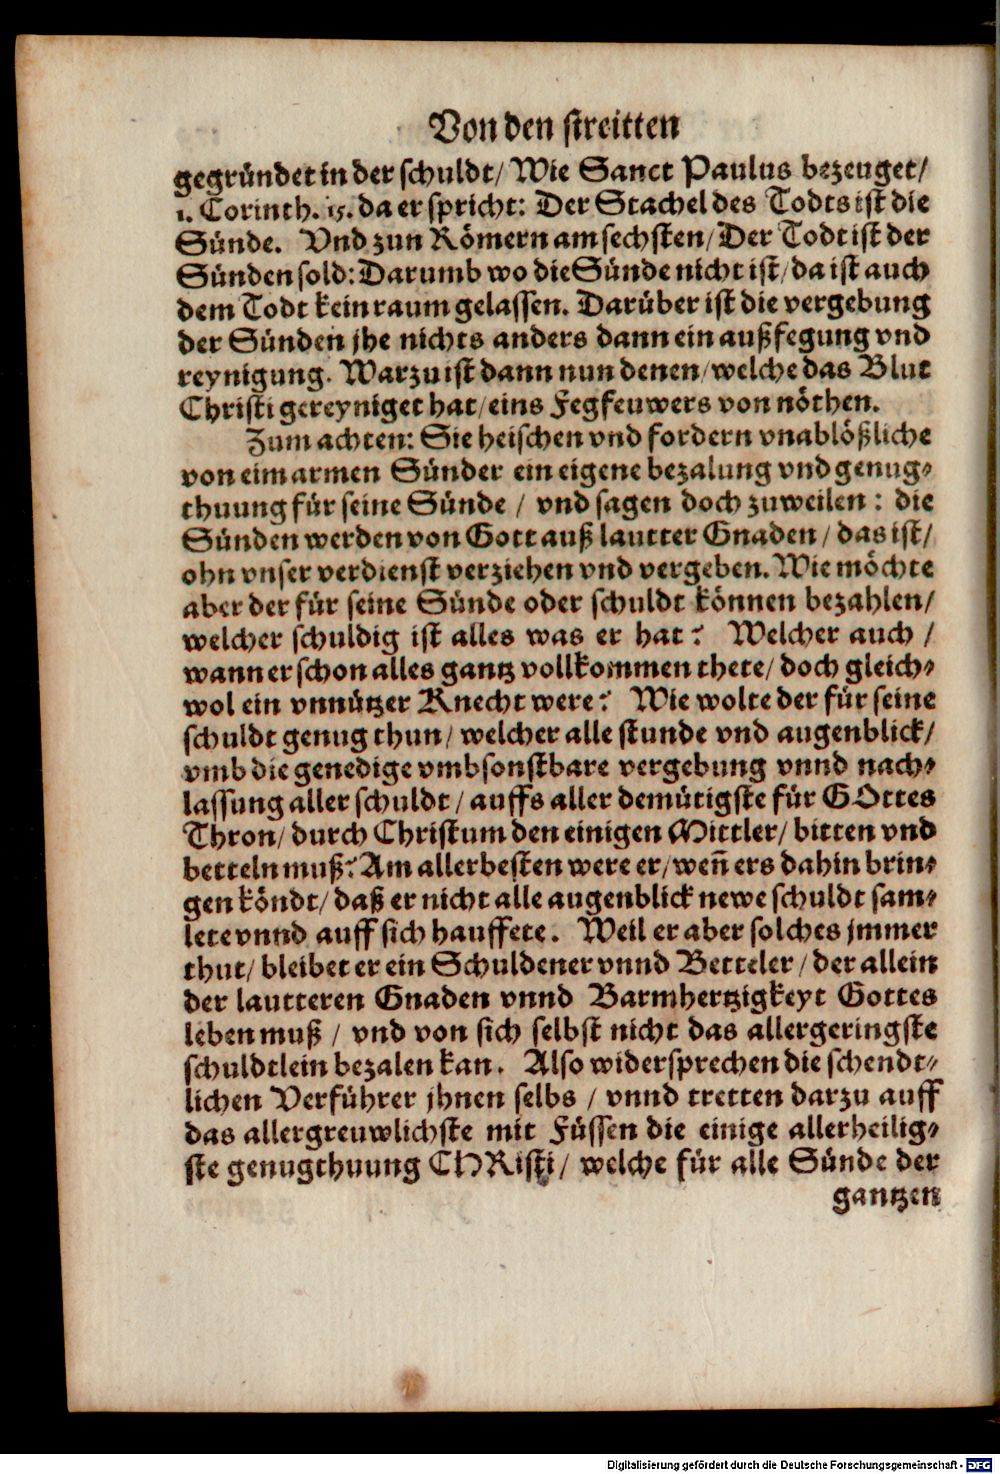 Von den streitten
gegründet in der schuldt/ Wie Sanct Paulus bezeuget/
1. Corinth. 15. da er spricht: Der Stachel des Todts ist die
Sünde. Vnd zun Römern am sechsten/ Der Todt ist der
Sünden sold: Darumb wo die Sünde nicht ist/ da ist auch
dem Todt kein raum gelassen. Darüber ist die vergebung
der Sünden jhe nichts anders dann ein außfegung vnd
reynigung. Warzu ist dann nun denen/ welche das Blut
Christi gereyniget hat/ eins Fegfeuwers von nöthen.
Zum achten: Sie heischen vnd fordern vnablößliche
von eim armen Sünder ein eigene bezalung vnd genug-
thuung für seine Sünde / vnd sagen doch zuweilen: die
Sünden werden von Gott auß lautter Gnaden / das ist/
ohn vnser verdienst verziehen vnd vergeben. Wie möchte
aber der für seine Sünde oder schuldt können bezahlen/
welcher schuldig ist alles was er hat? Welcher auch /
wann er schon alles gantz vollkommen thete/ doch gleich-
wol ein vnnützer Knecht were? Wie wolte der für seine
schuldt genug thun/ welcher alle stunde vnd augenblick/
vmb die genedige vmbsonstbare vergebung vnnd nach-
lassung aller schuldt / auffs aller demütigste für GOttes
Thron/ durch Christum den einigen Mittler/ bitten vnd
betteln muß? Am allerbesten were er/ weñ ers dahin brin-
gen köndt/ daß er nicht alle augenblick newe schuldt sam-
lete vnnd auff sich hauffete. Weil er aber solches jmmer
thut/ bleibet er ein Schuldener vnnd Betteler / der allein
der lautteren Gnaden vnnd Barmhertzigkeyt Gottes
leben muß / vnd von sich selbst nicht das allergeringste
schuldtlein bezalen kan. Also widersprechen die schendt-
lichen Verführer jhnen selbs / vnnd tretten darzu auff
das allergreuwlichste mit Füssen die einige allerheilig-
ste genugthuung CHRisti/ welche für alle Sünde der
gantzen
Digitalisierung gefördert durch die Deutsche Forschungsgemeinschaft - DFG